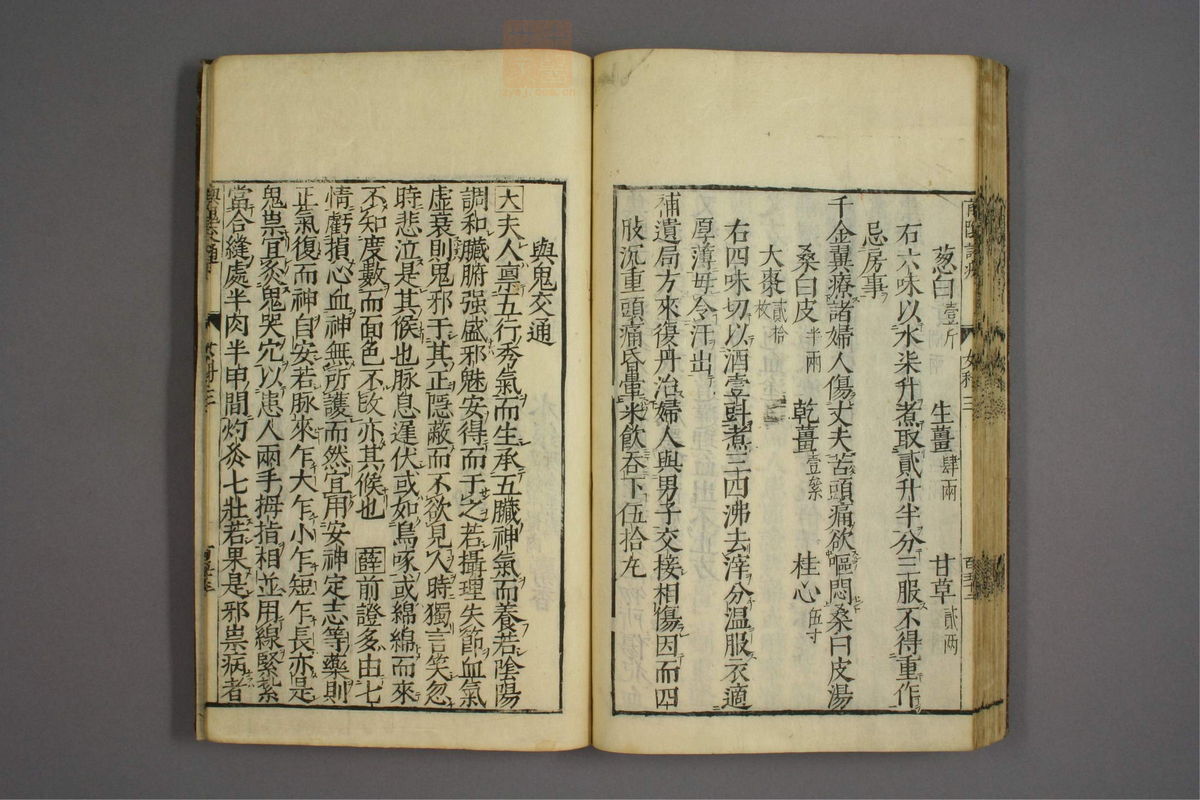 葱白壹斤　生薑肆兩　甘草貳兩
右六味以水柒升煮取貳升半分三服不得重作
忌房事
千金翼療諸婦人傷丈夫苦頭痛欲嘔悶桑白皮湯
桑白皮半兩　乾薑壹絫　桂心伍寸
大棗貳拾枚
右四味切以酒壹㪷煮三四沸去滓分温服衣適
厚薄毋令汗出
補遺局方來復丹治婦人與男子交接相傷因而四
肢沉重頭痛昏暈米飲吞下伍拾丸
女科三
與鬼交通
大夫人禀五行秀氣而生承五臟神氣而養若陰陽
調和臟腑强盛邪魅安得而干之若攝理失節血氣
虚衰則鬼邪干其正隱蔽而不欲見人時獨言笑忽
時悲泣是其候也脉息遲伏或如鳥啄或綿綿而來
不知度數而面色不改亦其候也　薛前證多由七
情虧損心血神無所護而然宜用安神定志等藥則
正氣復而神自安若脉來乍大乍小乍短乍長亦是
鬼祟宜灸鬼哭穴以患人兩手拇指相並用線緊紮
當合縫處半肉半甲間灼灸七壯若果是邪祟病者